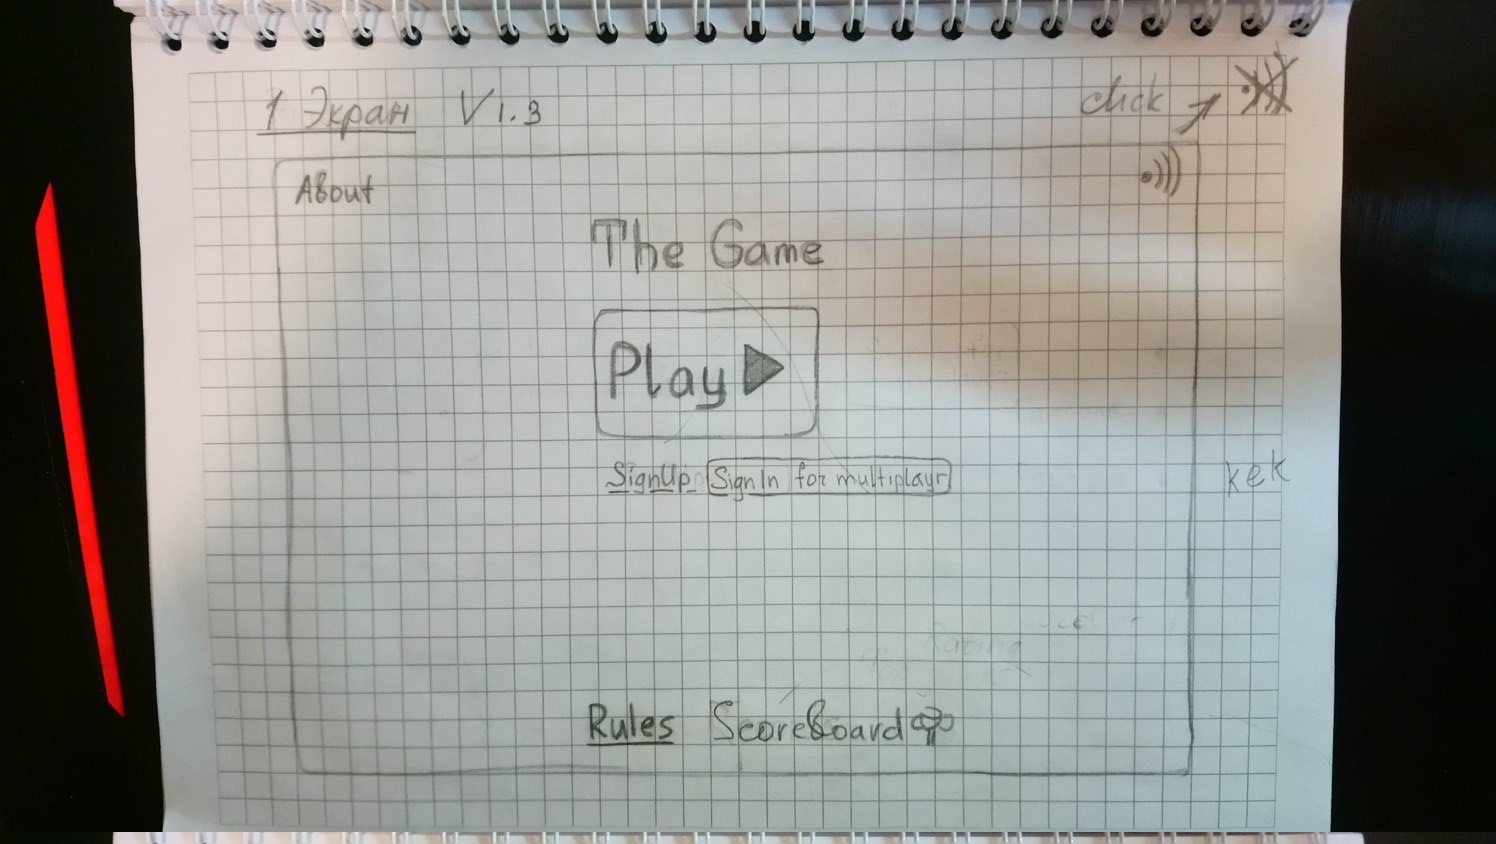 1 Экран V 1.3
click
About
The Game
Play
SignUp SignIn for multiplayr
kek
Rating
Rules ScoreBoard